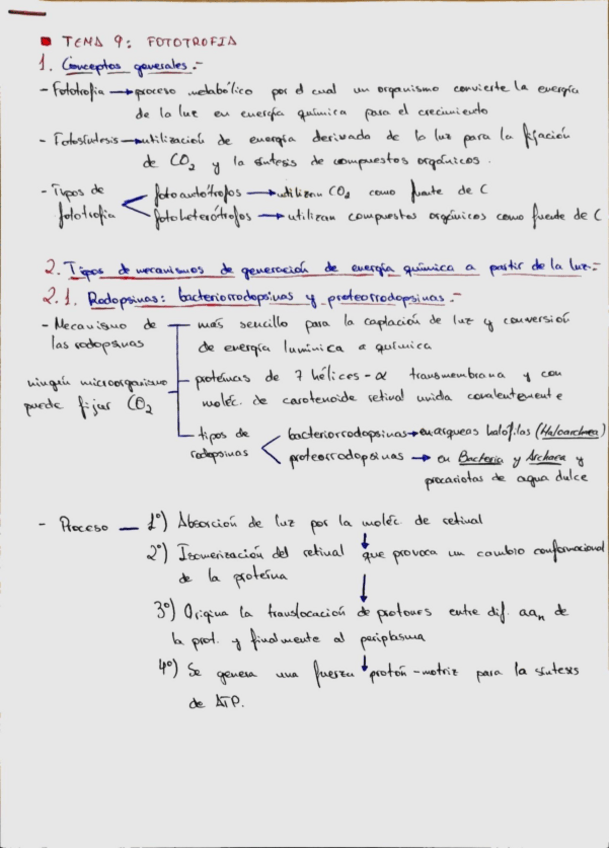 TEMA 9: FOTOTROFIA
1. Conceptos generales.-
- Fototrofia → proceso metabólico por el cual un organismo convierte la energía
de la luz en energía química para el crecimiento
- Fotosíntesis → utilización de energía derivada de la luz para la fijación
de CO2 y la síntesis de compuestos orgánicos.
- Tipos de fototrofia
fotoautótrofos → utilizan CO2 como fuente de C
fotoheterótrofos → utilizan compuestos orgánicos como fuente de C
2. Tipos de mecanismos de generación de energía química a partir de la luz.-
2.1. Rodopsinas: bacteriorrodopsinas y proteorrodopsinas.-
- Mecanismo de las rodopsinas
más sencillo para la captación de luz y conversión
de energía lumínica a química
ningún microorganismo
puede fijar CO2
proteínas de 7 hélices-α transmembrana y con
moléc. de carotenoide retinal unida covalentemente
tipos de rodopsinas
bacteriorrodopsinas → en arqueas halófilas (Haloarchaea)
proteorrodopsinas → en Bacteria y Archaea y
procariotas de agua dulce
- Proceso — 1º) Absorción de luz por la moléc. de retinal
2º) Isomerización del retinal que provoca un cambio conformacional
de la proteína
3º) Origina la translocación de protones entre dif. aan de
la prot. y finalmente al periplasma
4º) Se genera una fuerza protón-motriz para la síntesis
de ATP.